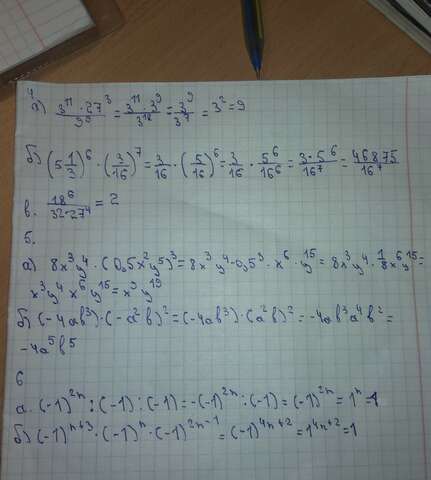 4
а) (3¹¹ · 27³)/9⁹ = (3¹¹ · 3⁹)/3¹⁸ = 3⁹/3⁷ = 3² = 9
б) (5 1/3)⁶ · (3/16)⁷ = 3/16 · (5/16)⁶ = 3/16 · 5⁶/16⁶ = (3 · 5⁶)/16⁷ = 46875/16⁷
в. 18⁶/(32·27⁴) = 2
5.
а) 8x³y⁴ · (0,5x²y⁵)³ = 8x³y⁴ · 0,5³ · x⁶ · y¹⁵ = 8x³y⁴ · 1/8 x⁶y¹⁵ =
x³y⁴ x⁶y¹⁵ = x⁹y¹⁹
б) (-4ab³) · (-a²b)² = (-4ab³) · (a²b)² = -4ab³a⁴b² =
-4a⁵b⁵
6
а. (-1)²ⁿ : (-1) : (-1) = -(-1)²ⁿ : (-1) = (-1)²ⁿ = 1ⁿ = 1
б) (-1)ⁿ⁺³ · (-1)ⁿ · (-1)²ⁿ⁻¹ = (-1)⁴ⁿ⁺² = 1⁴ⁿ⁺² = 1